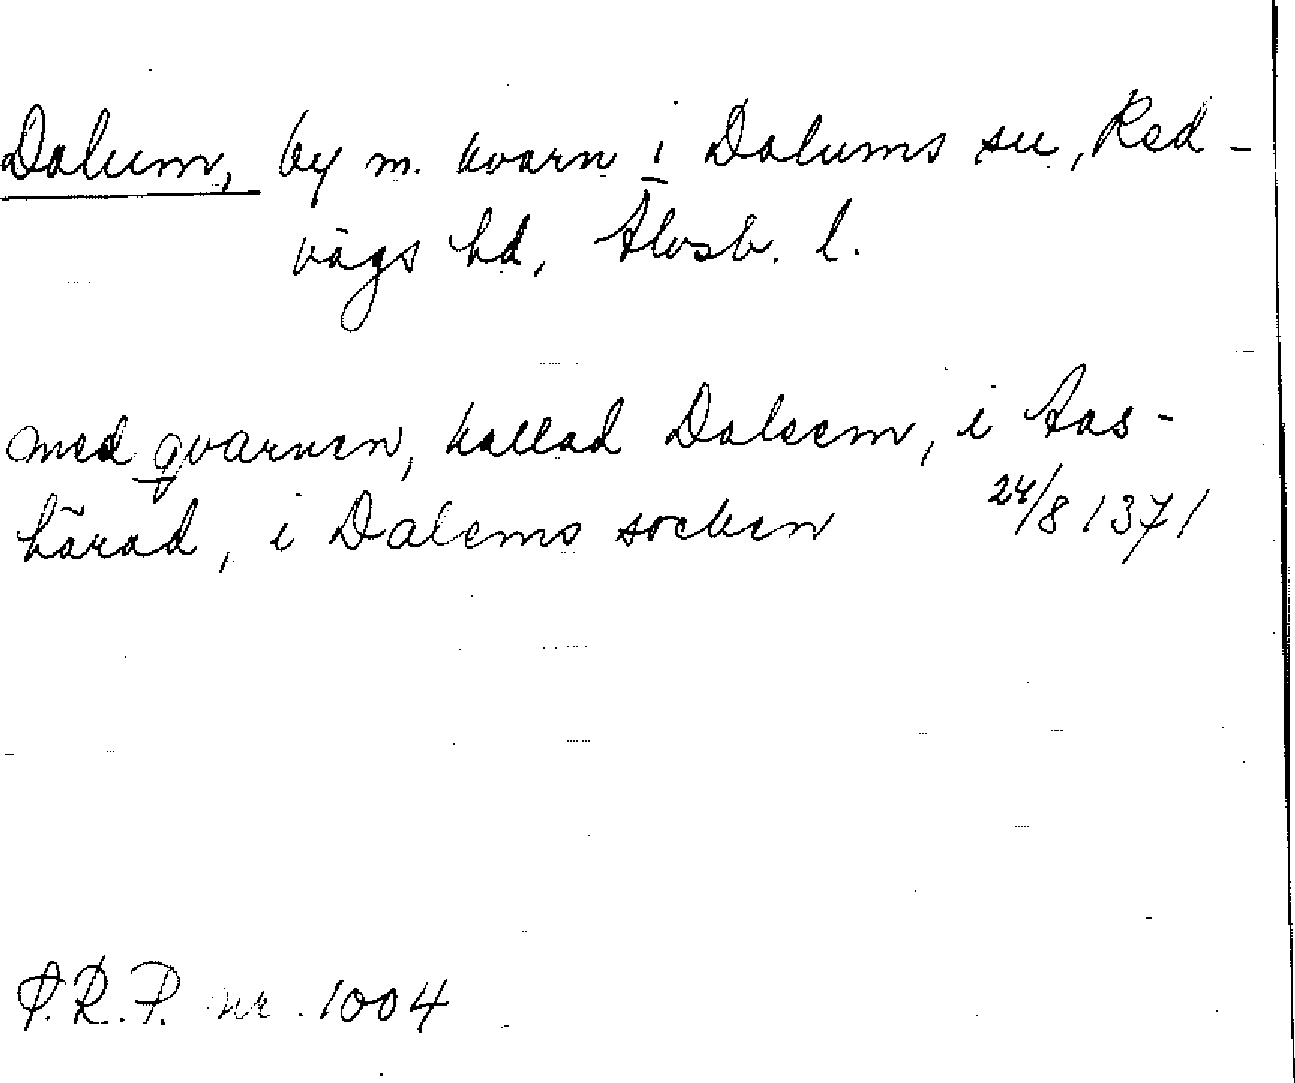 Dalum, by m. kvarn i Dalums sn, Red-
vägs hd, Älvsb. l.
med qvarnen, kallad Daleem, i Aas-
härad, i Dalems socken 24/8 1371
P.R.P. nr. 1004